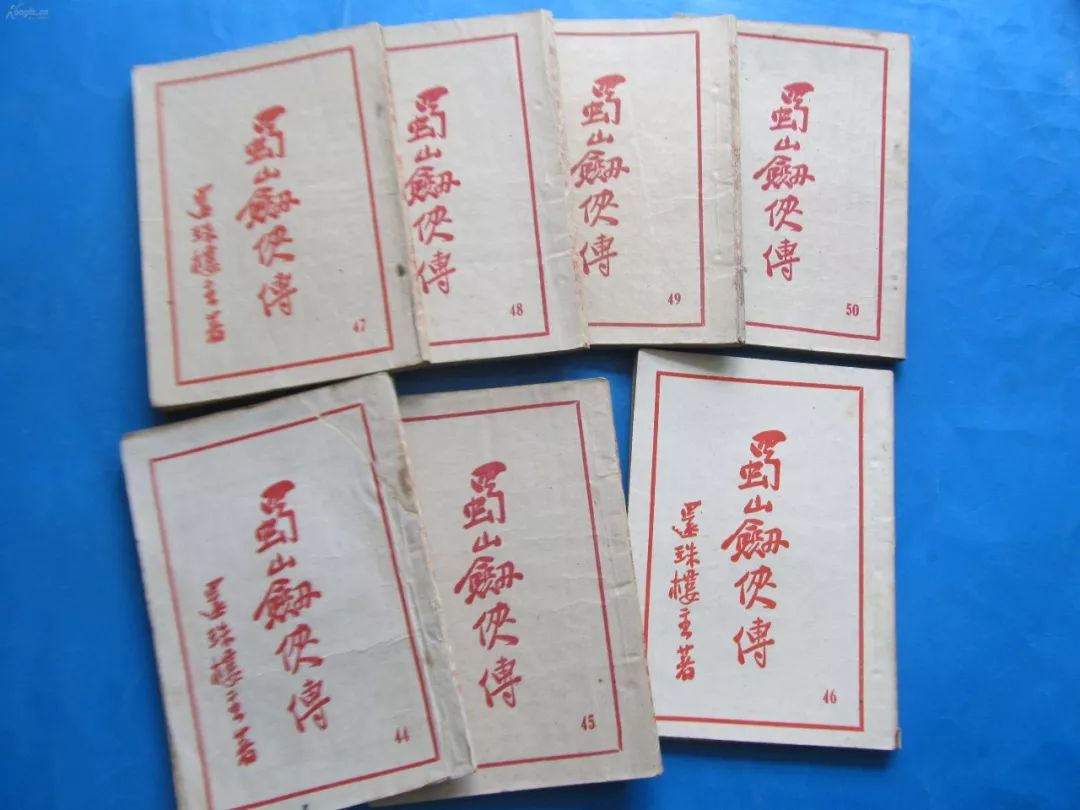 蜀山劔俠傳
還珠樓主著
47
蜀山劔俠傳
48
蜀山劔俠傳
49
蜀山劔俠傳
50
蜀山劔俠傳
還珠樓主著
44
蜀山劔俠傳
45
蜀山劔俠傳
還珠樓主著
46